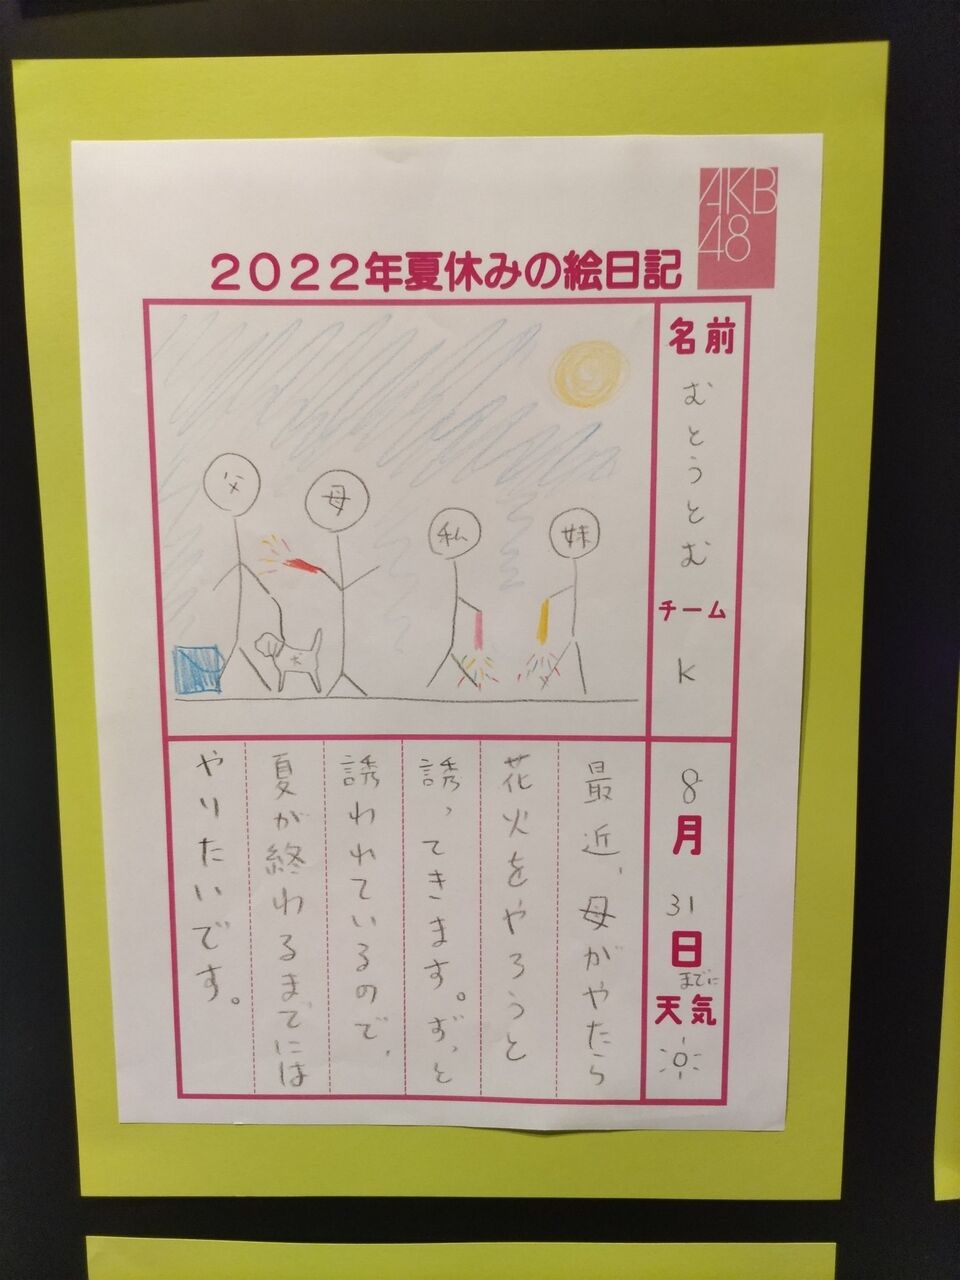 AKB
48
2022年夏休みの絵日記
名前
むとうとむ
チーム
K
8月31日
までに
天気
父
母
私
妹
犬
最近、母がやたら
花火をやろうと
誘ってきます。ずっと
誘われているので、
夏が終わるまでには
やりたいです。